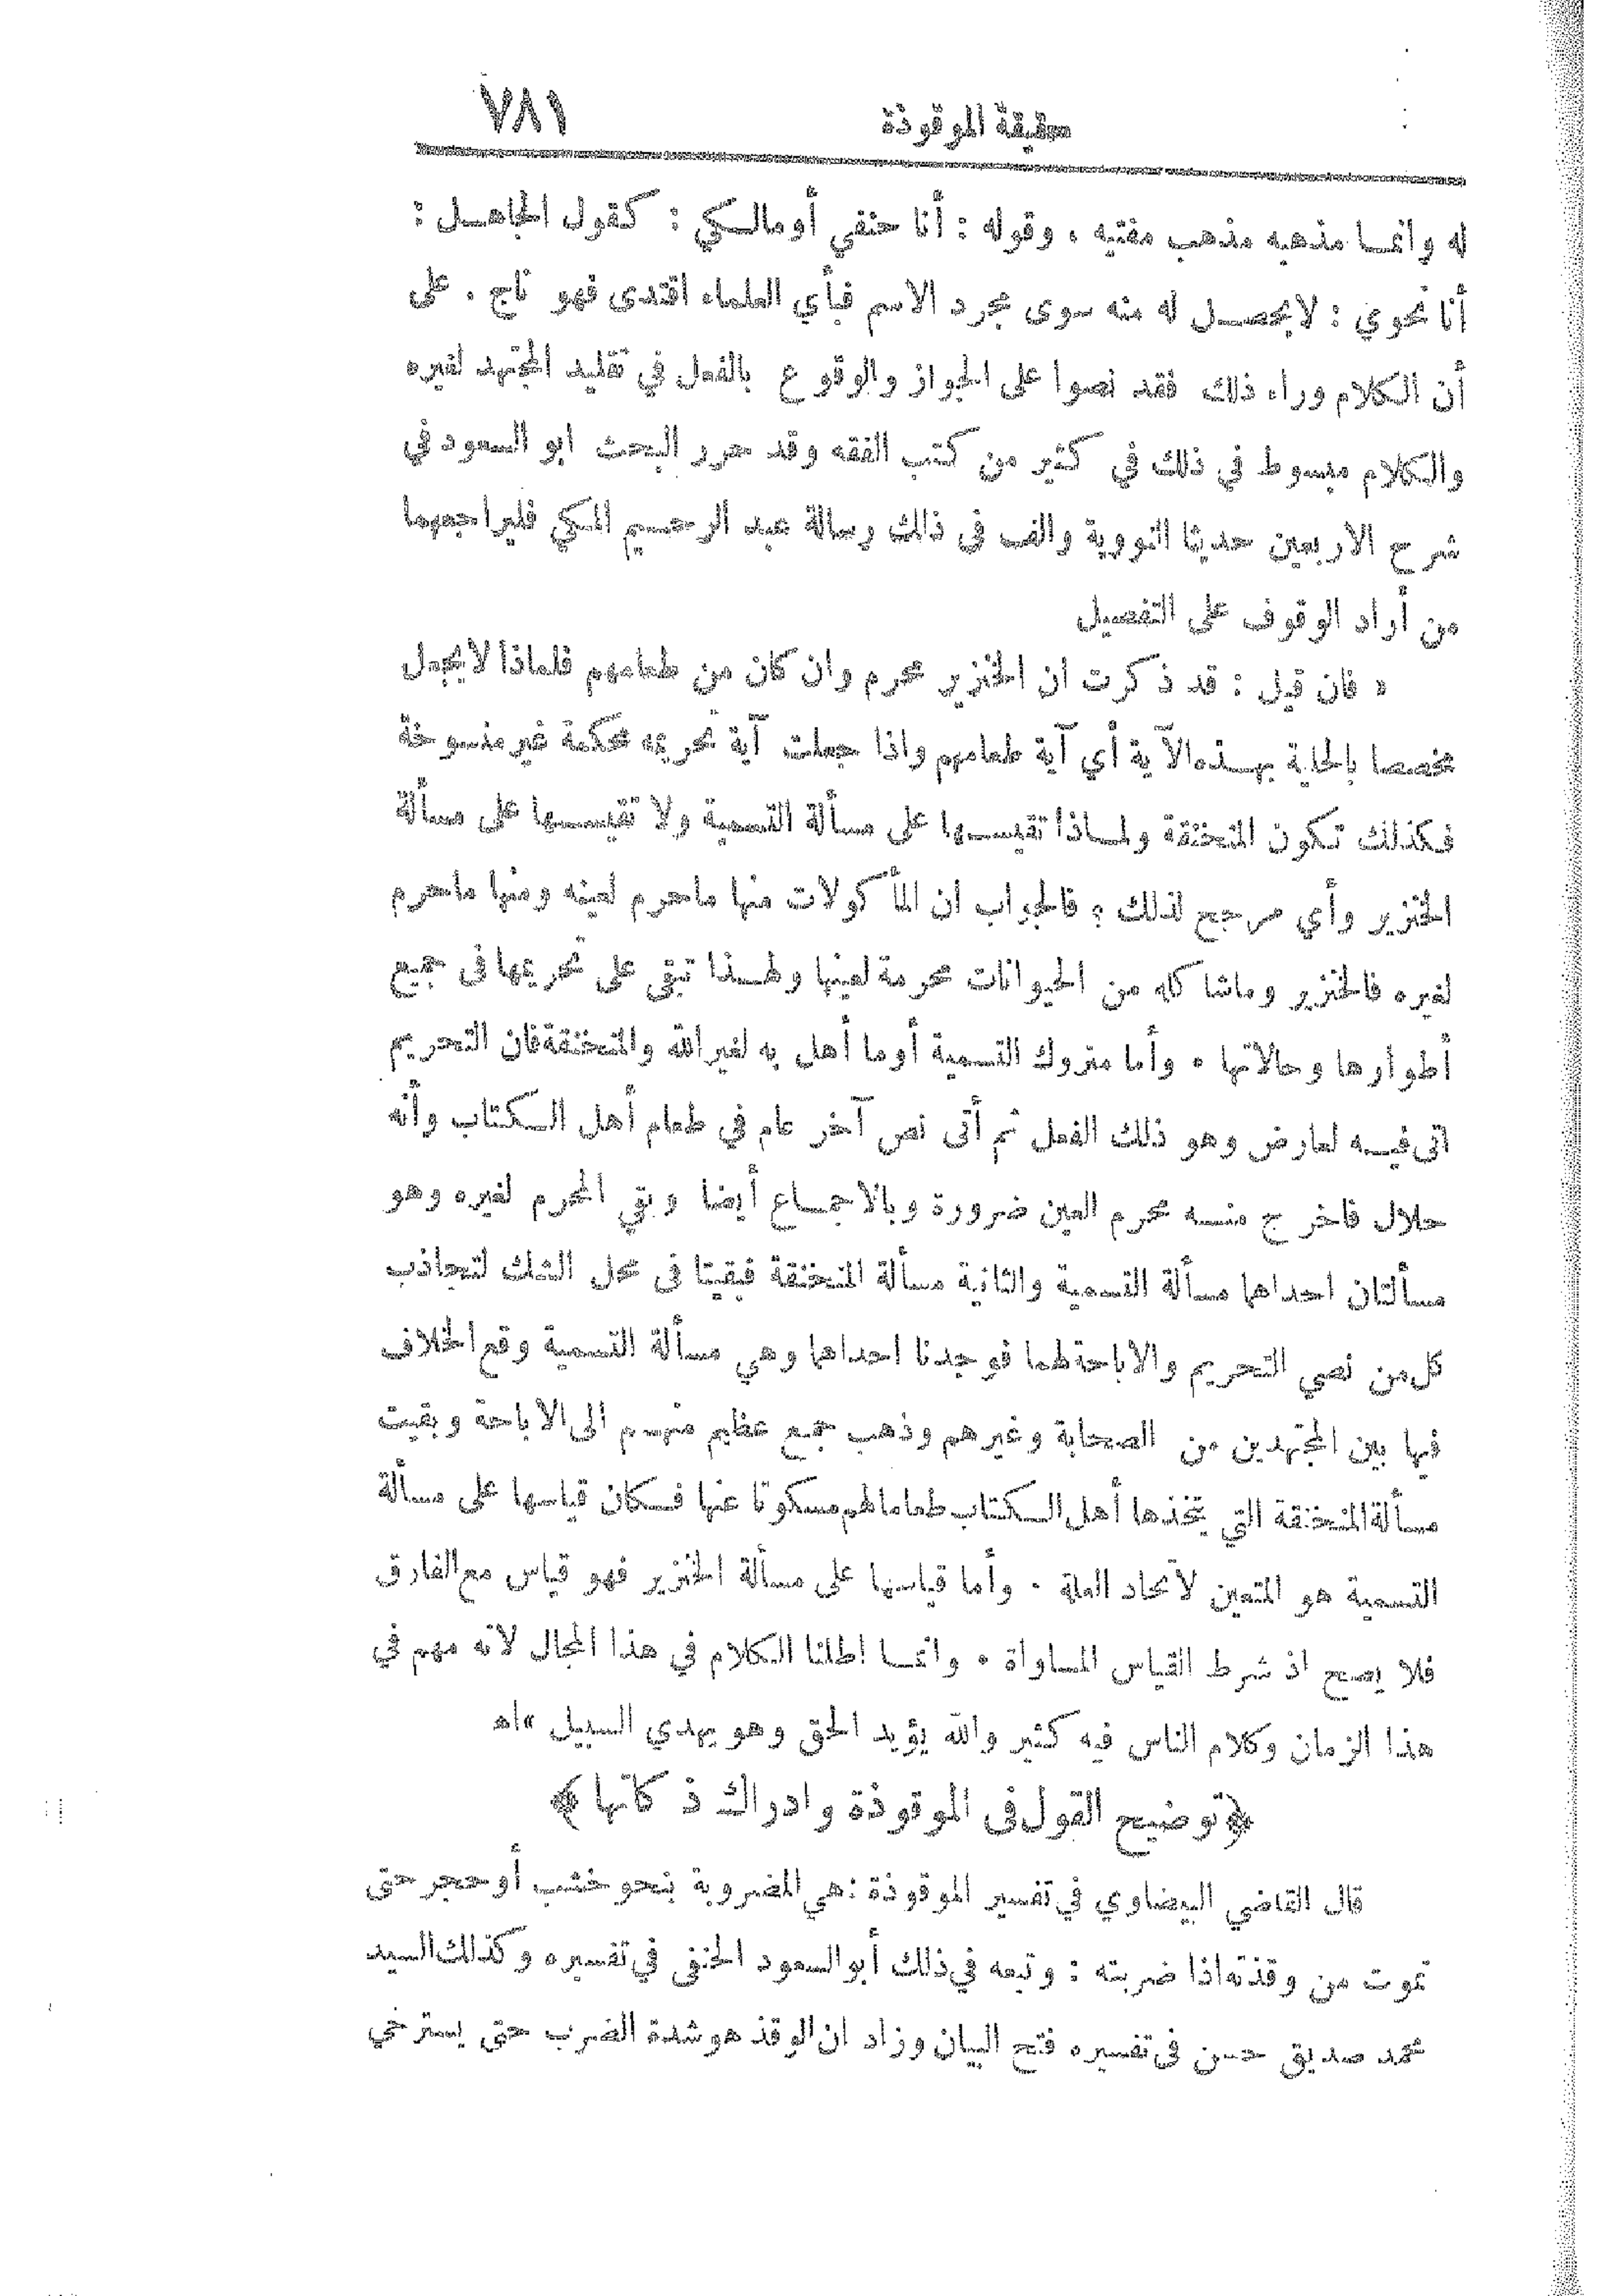 حقيقة الموقوذة ٧٨١
له وانمـا مذهبه مذهب مفتيه ، وقوله : أنا حنفي أو مالكي : كقول الجاهل :
أنا نحوي : لا يحصـل له منه سوى مجرد الاسم فبأي العلماء اقتدى فهو ناج . على
أن الكلام وراء ذلك فقد نصوا على الجواز والوقوع بالفعل في تقليد المجتهد لغيره
والكلام مبسوط في ذلك في كثير من كتب الفقه وقد حرر البحث ابو السعود في
شرح الاربعين حديثا النووية والف في ذلك رسالة عبد الرحيم المكي فليراجعهما
من أراد الوقوف على التفصيل
« فان قيل : قد ذكرت ان الخنزير محرم وان كان من طعامهم فلماذا لا يجعل
مخصصا بالحلية بهـذه الآية أي آية طعامهم واذا جعلت آية تحريمه محكمة غير منسوخة
فكذلك تكون المنخنقة ولمـاذا تقيسـها على مسألة التسمية ولا تقيسـها على مسألة
الخنزير وأي مرجح لذلك ؟ فالجواب ان المأكولات منها ماحرم لعينه ومنها ماحرم
لغيره فالخنزير وماشاكله من الحيوانات محرمة لعينها ولهـذا تبقى على تحريمها فى جميع
أطوارها وحالاتها . وأما متروك التسمية أوما أهل به لغير الله والمنخنقة فان التحريم
اتى فيـه لعارض وهو ذلك الفعل ثم أتى نص آخر عام في طعام أهل الـكتاب وأنه
حلال فاخرج منـه محرم العين ضرورة وبالاجمـاع أيضا وبقي المحرم لغيره وهو
مسألتان احداها مسألة التسمية والثانية مسألة المنخنقة فبقيتا فى محل الشك لتجاذب
كل من نصي التحريم والاباحة لهما فوجدنا احداها وهي مسألة التسمية وقع الخلاف
فيها بين المجتهدين من الصحابة وغيرهم وذهب جمع عظيم منهـم الى الاباحة وبقيت
مسألة المنخنقة التي يتخذها أهل الـكتاب طعاما لهم مسكوتا عنها فـكان قياسها على مسألة
التسمية هو المتعين لاتحاد العلة . وأما قياسها على مسألة الخنزير فهو قياس مع الفارق
فلا يصح اذ شرط القياس المساواة . وانمـا اطلنا الكلام في هذا المجال لانه مهم في
هذا الزمان وكلام الناس فيه كثير والله يؤيد الحق وهو يهدي السبيل » اه
﴿ توضيح القول فى الموقوذة وادراك ذكاتها ﴾
قال القاضي البيضاوي في تفسير الموقوذة : هي المضروبة بنحو خشب أو حجر حتى
تموت من وقذته اذا ضربته : وتبعه في ذلك أبو السعود الحنفي في تفسيره وكذلك السيد
محمد صديق حسن فى تفسيره فتح البيان وزاد ان الوقذ هو شدة الضرب حتى يسترخي